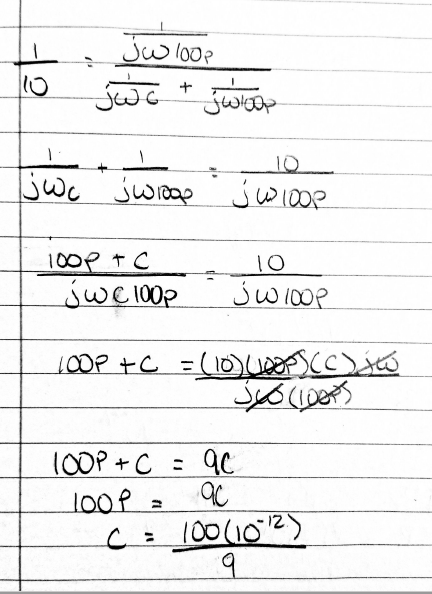 1/10 = (1/jω100p) / (1/jωC + 1/jω100p)
1/jωC + 1/jω100p = 10/jω100p
(100p + C)/(jωC100p) = 10/jω100p
100p + C = (10)(100p)(C)jω / jω(100p)
100p + C = 9C
100p = 9C
C = 100(10⁻¹²)/9